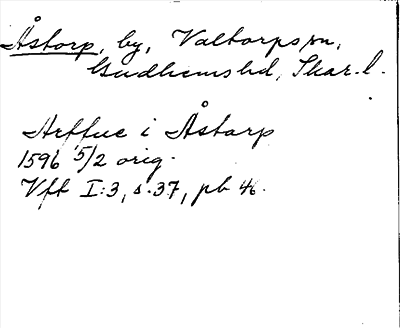 Åstorp, by, Valtorps sn,
Gudhems hd, Skar. l.
Arffue i Åstorp
1596 5/2 orig.
Vft I:3, s. 37, pb 46.